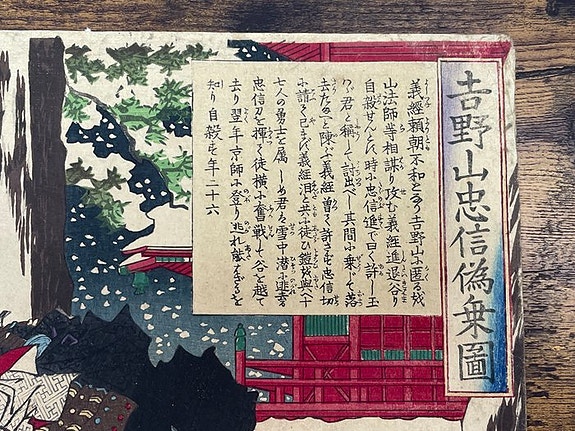 吉野山忠信偽乗圖
義經頼朝不和となり吉野山に匿る
山法師等相謀り攻む義經進退谷り
自殺せんとす時に忠信進で曰く許し玉
ハヾ君と稱して討出べし其間に乗じて落
去たまへと陳ぶ義經曽て許さず忠信切
に請て已まず義經泪と共に徒ひ鎧を與へ十
七人の勇士を属しめ君ハ雪中潜に
忠信刃を揮て徒横に奮戦して谷を越て
去り翌年京師に登り逃れ難きを
知り自殺す年二十六